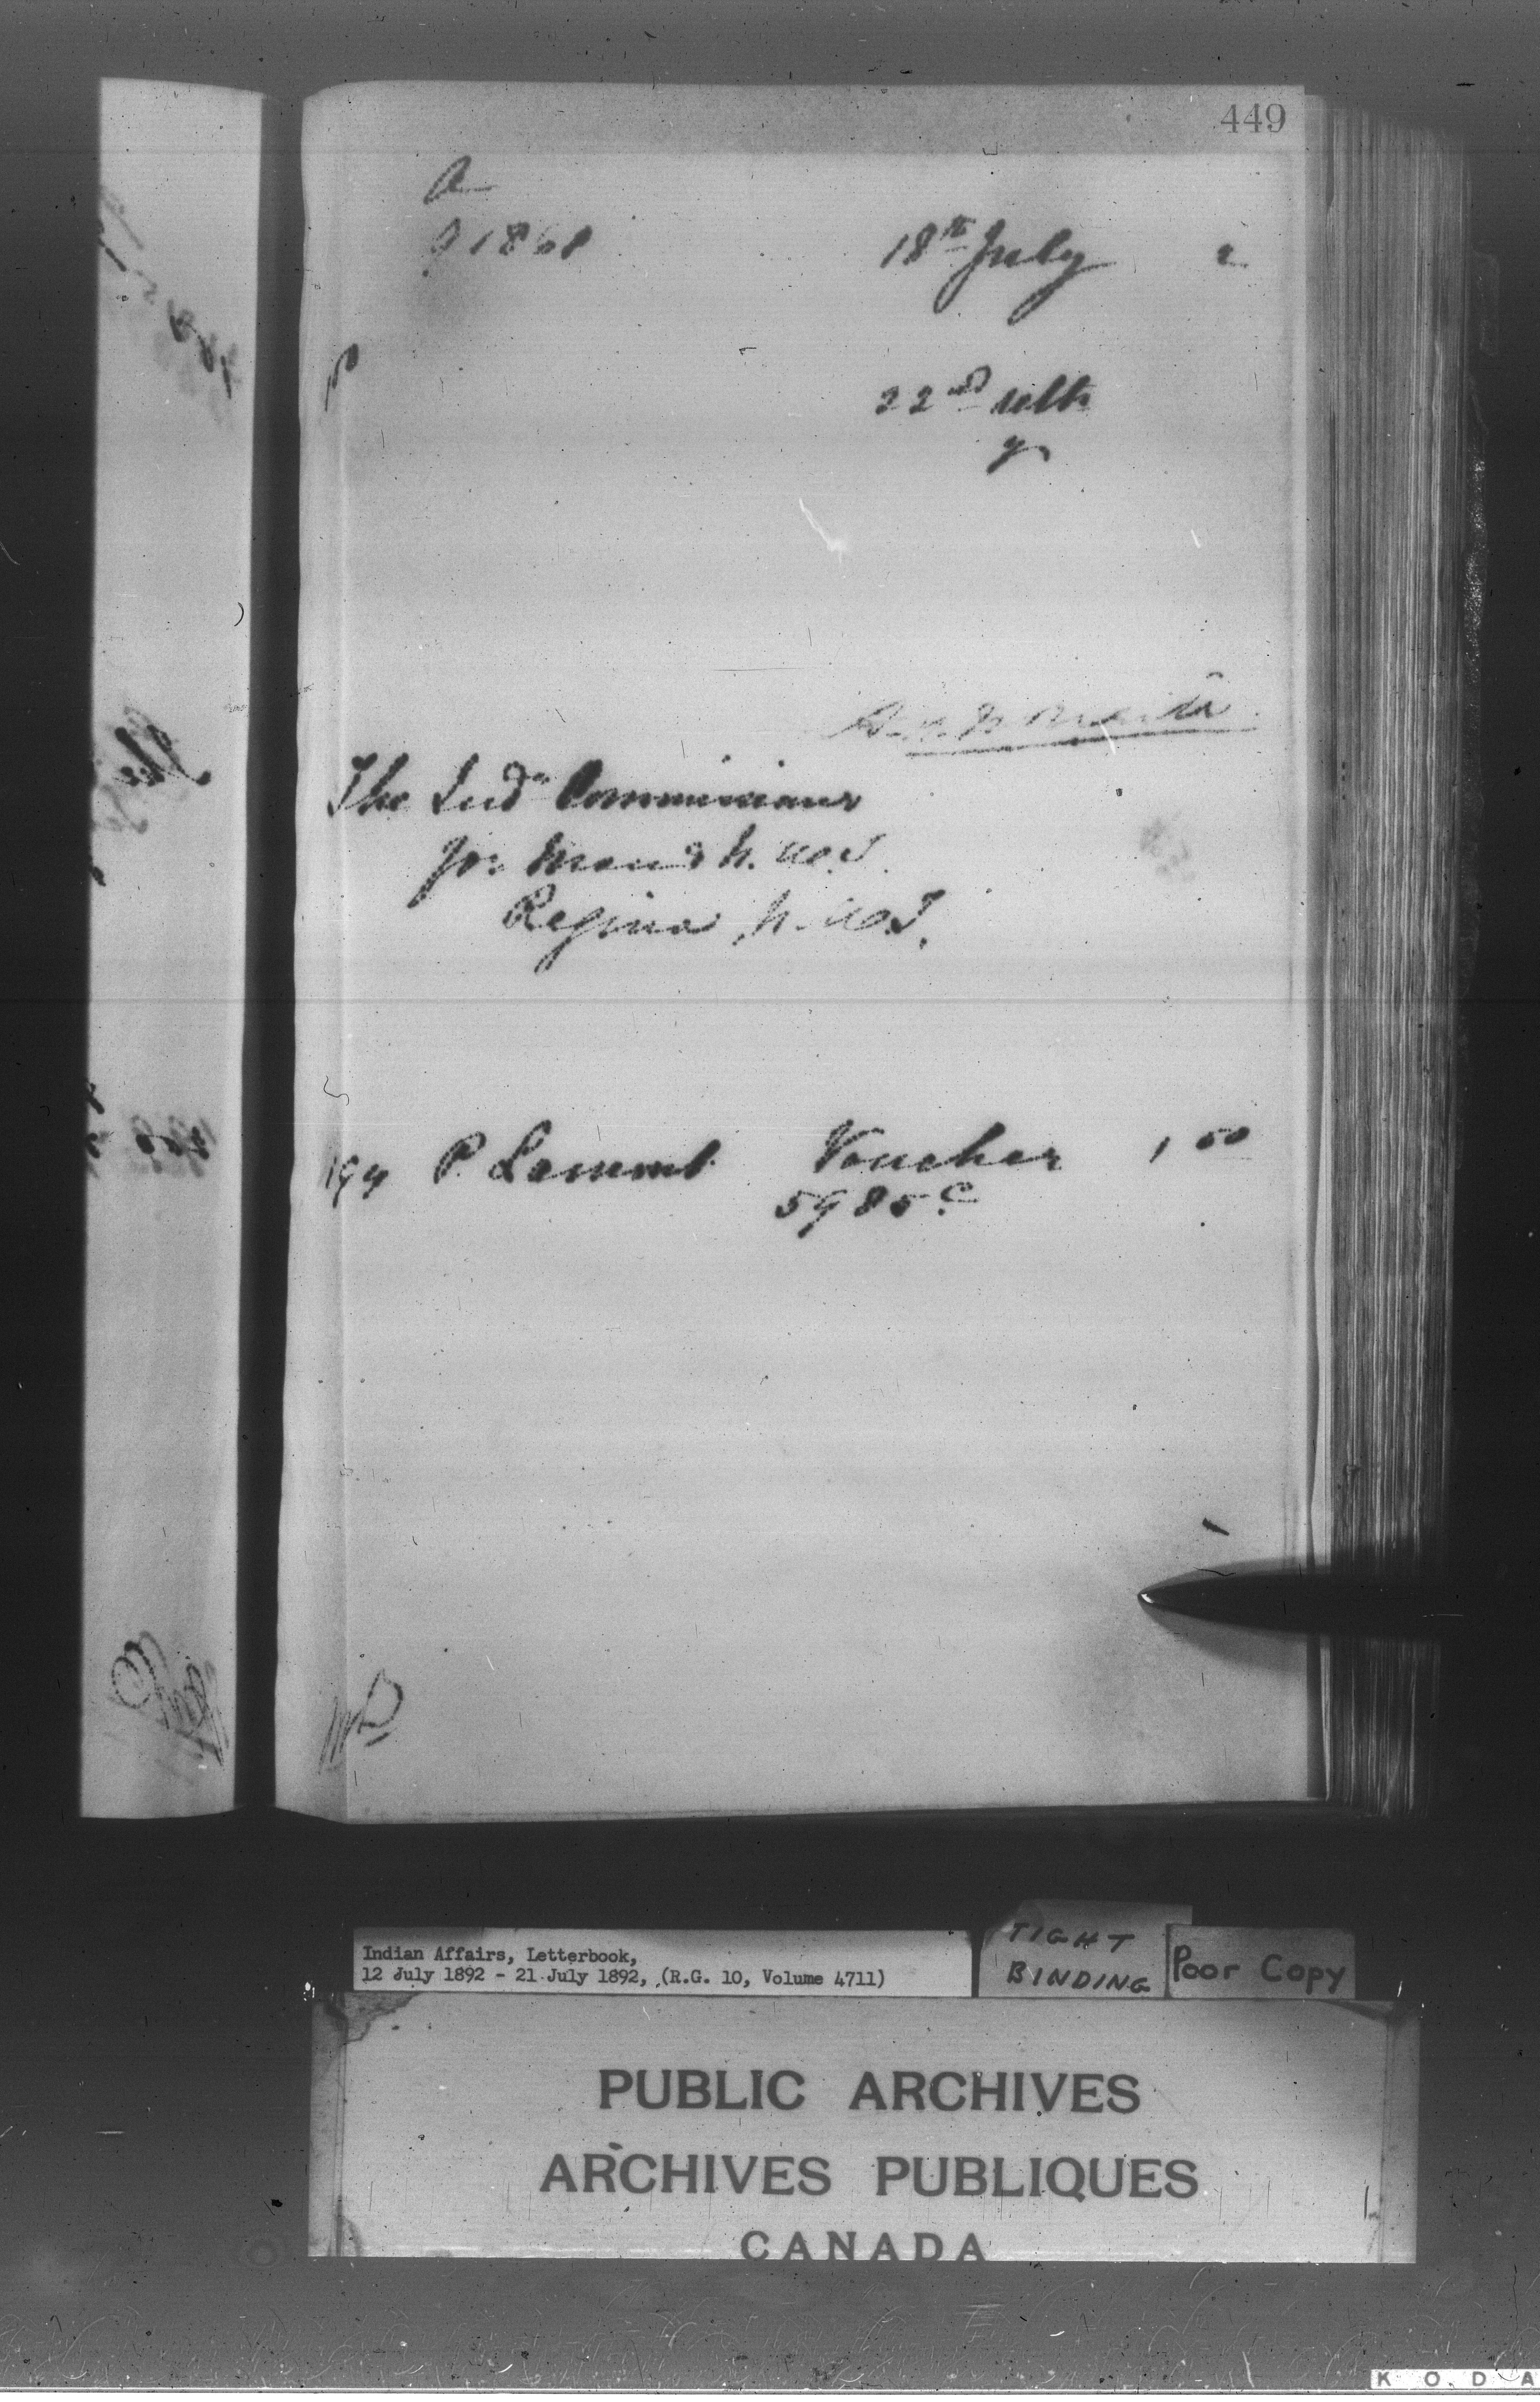 449
A
18th July 2
22nd ulto
The Indn Commissioner
for Man & N.W.T.
Regina N.W.T.
194 P. Lamont Voucher 1 50
5985 c
Indian Affairs, Letterbook,
12 July 1892 - 21 July 1892, (R.G. 10, Volume 4711)
TIGHT
BINDING
Poor Copy
PUBLIC ARCHIVES
ARCHIVES PUBLIQUES
CANADA
K O D A